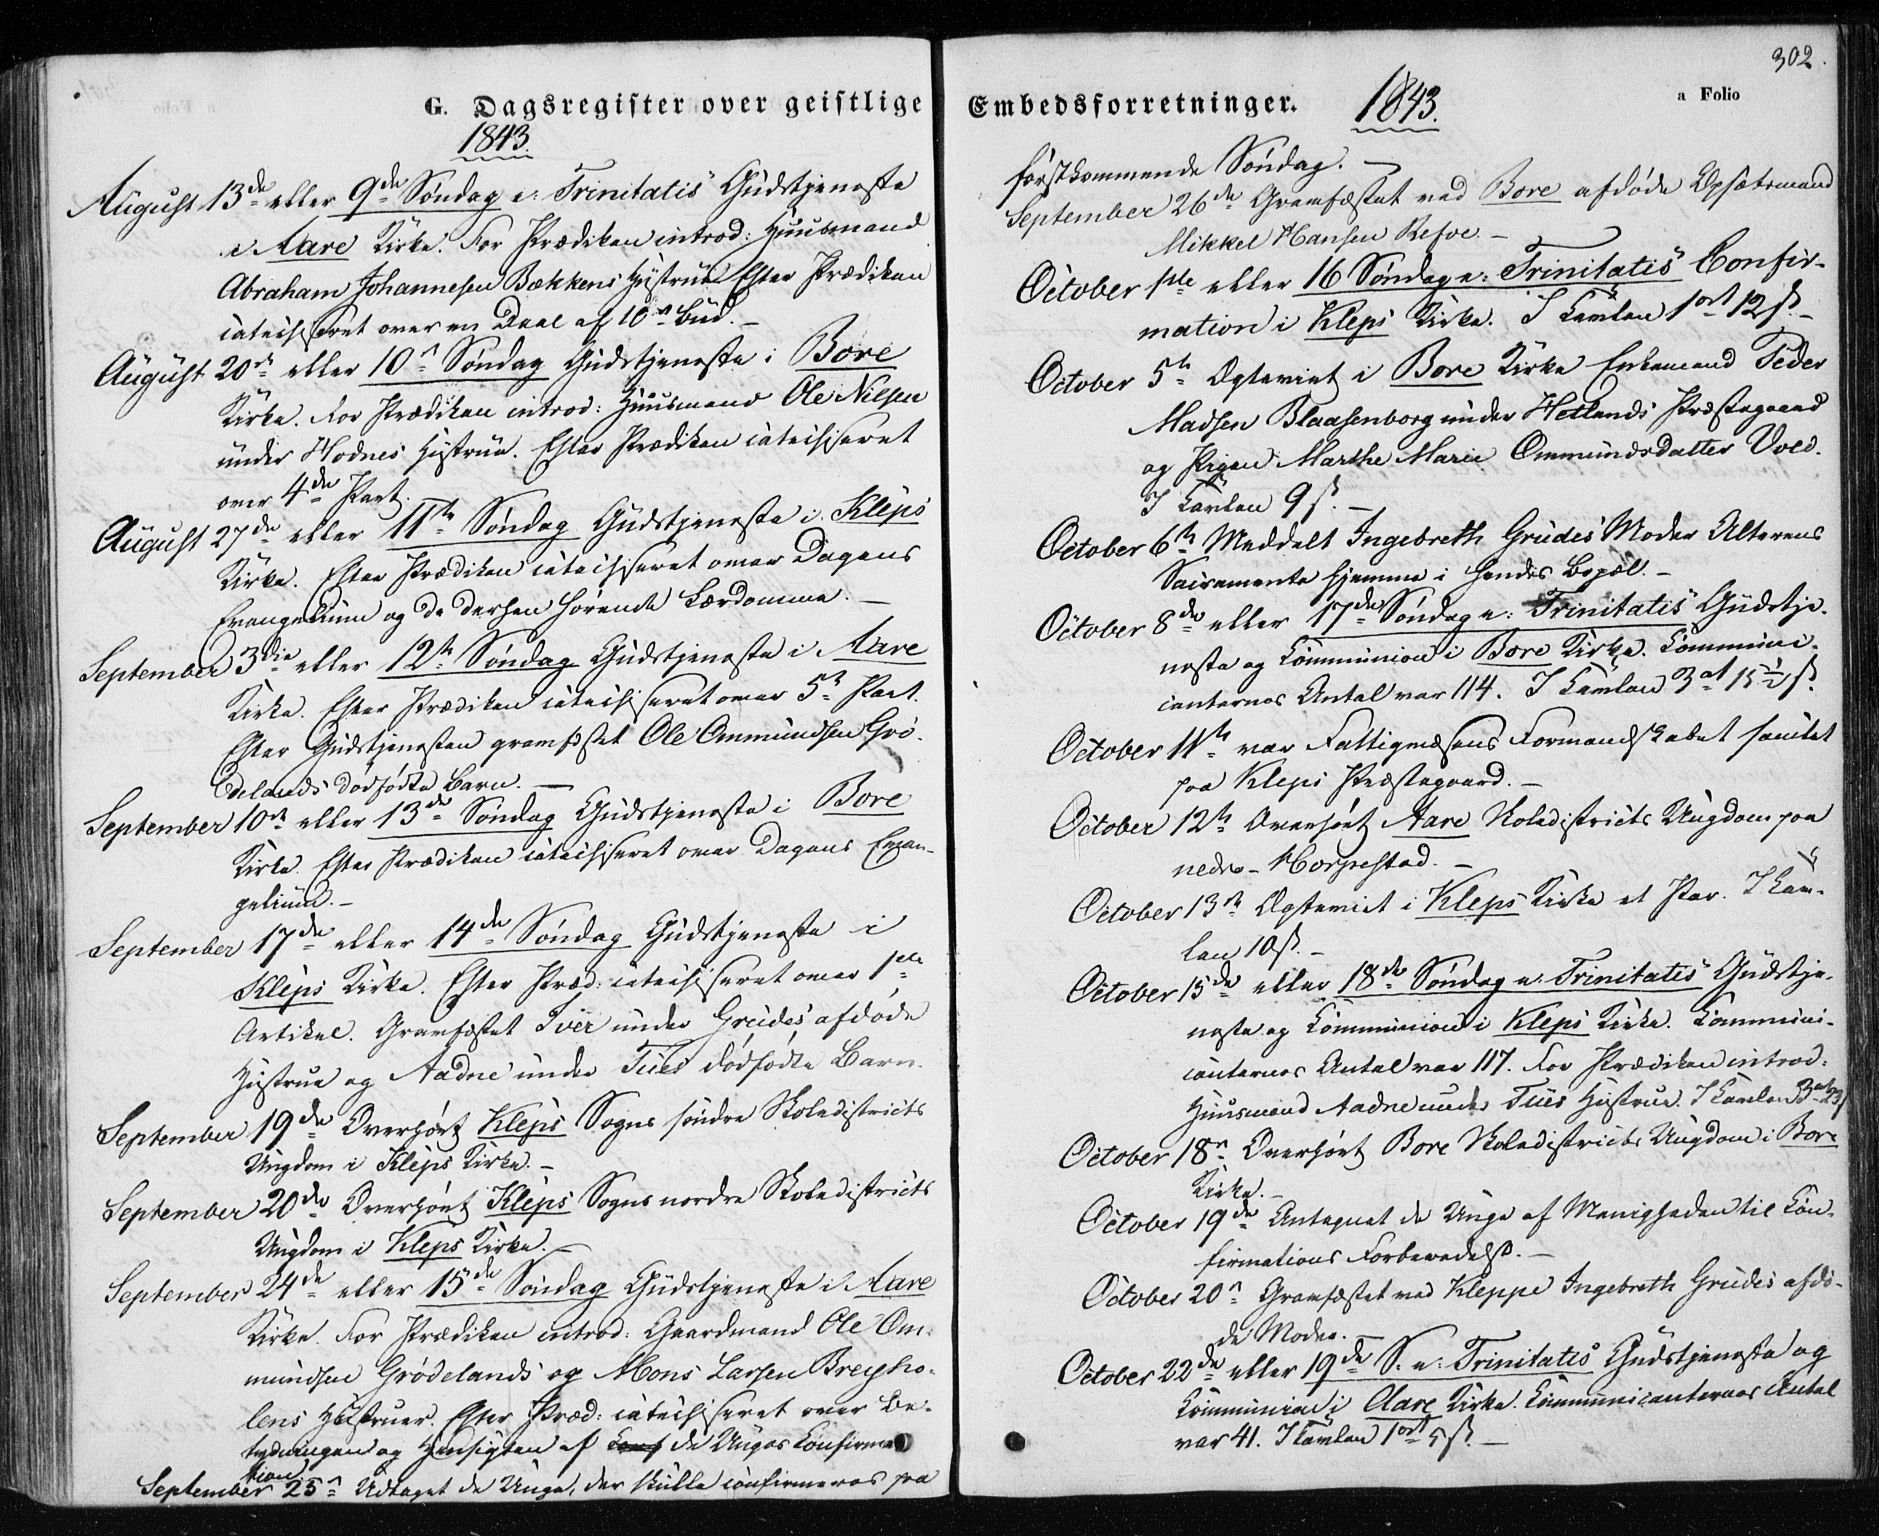 G. Dagsregister over geistlige
1843.
August 13de eller 9de Søndag e: Trinitatis Gudstjeneste
i Aare Kirke. For Prædiken introd: Huusmand
Abraham Johannesen Bækkens Hustrue. Efter Prædiken
catechiseret over en Deel af 10de Bud.
August 20de eller 10de Søndag Gudstjeneste i Bore
Kirke. For Prædiken introd: Huusmand Ole Nilsen
under Hodnes Hustrue. Efter Prædiken catechiseret
over 4de Part.
August 27de eller 11te Søndag Gudstjeneste i Kleps
Kirke. Efter Prædiken catechiseret over Dagens
Evangelium og de derhen hørende Lærdomme.
September 3die eller 12te Søndag Gudstjeneste i Aare
Kirke. Efter Prædiken catechiseret over 5te Part.
Efter Gudstjenesten gravfæstet Ole Ommundsen Grø-
delands dødfødte Barn.
September 10de eller 13de Søndag Gudstjeneste i Bore
Kirke. Efter Prædiken catechiseret over Dagens Evan-
gelium.
September 17de eller 14de Søndag Gudstjeneste i
Kleps Kirke. Efter Præd: catechiseret over 1ste
Artikel. Gravfæstet Iver under Grudes afdøde
Hustrue og Aadne under Tues dødfødte Barn.
September 19de Overhørt Kleps Sogns søndre Skoledistricts
Ungdom i Kleps Kirke.
September 20de Overhørt Kleps Sogns nordre Skoledistricts
Ungdom i Kleps Kirke.
September 24de eller 15de Søndag Gudstjeneste i Aare
Kirke. For Prædiken introd: Gaardmand Ole Om-
mundsen Grødelands og Mons Larsen Breyho-
lens Hustruer. Efter Præd: catechiseret over Be-
tydningen og Hensigten af de Unges Confirma
tion.
September 25de Udtaget de Unge, der skulle confirmeres paa
302.
Embedsforretninger. 1843. a Folio
førstkommende Søndag.
September 26de Gravfæstet ved Bore afdøde Opsætsmand
Mikkel Hansen Refve.
October 1ste eller 16 Søndag e: Trinitatis Confir-
mation i Kleps Kirke. I Tavlen 1 ort 12 ß.
October 5te Ægteviet i Bore Kirke Enkemand Peder
Madsen Blaasenborg under Hetlands Præstegaard
og Pigen Marthe Marie Ommundsdatter Vold.
I Tavlen 9 ß.
October 6te Meddelt Ingebreth Grudes Moder Alterens
Sacramente hjemme i hendes Bopæl.
October 8de eller 17de Søndag e: Trinitatis Gudstje-
neste og Communion i Bore Kirke. Communi-
canternes Antal var 114. I Tavlen 3 ort 15½ ß.
October 11te var Fattigvæsens Formandskabet samlet
paa Kleps Præstegaard.
October 12te Overhørt Aare Skoledistricts Ungdom paa
nedre-Horpestad.
October 13de Ægteviet i Kleps Kirke et Par. I Tav-
len 10 ß.
October 15de eller 18de Søndag e: Trinitatis Gudstje-
neste og Communion i Kleps Kirke. Communi-
canternes Antal var 117. For Prædiken introd:
Huusmand Aadne under Tues Hustrue. I Tavlen 3 ort 23 ß
October 18de Overhørt Bore Skoledistricts Ungdom i Bore
Kirke.
October 19de Antegnet de Unge af Menigheden til Con-
firmations Forberedelse.
October 20de Gravfæstet ved Kleppe Ingebreth Grudes afdø-
de Moder.
October 22de eller 19de S. e: Trinitatis Gudstjeneste og
Communion i Aare Kirke. Communicanternes Antal
var 41. I Tavlen 1 ort 5 ß.